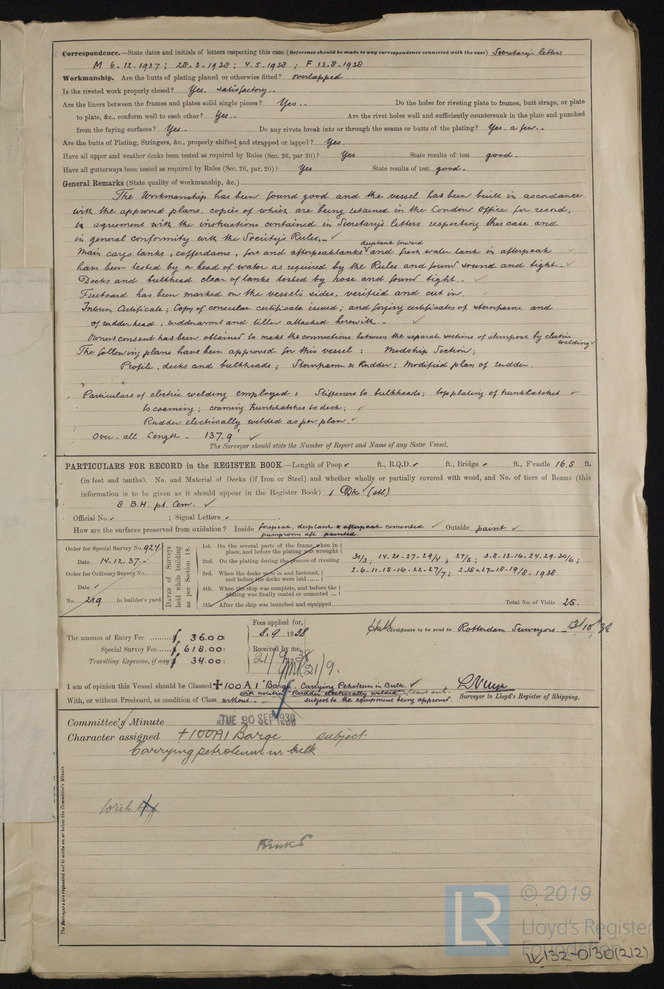 Correspondence.—State dates and initials of letters respecting this case (Reference should be made to any correspondence connected with the case) Secretary's letters
M 6.12.1937; 28.3.1938; 4.5.1938; F 13.8.1938
Workmanship. Are the butts of plating planed or otherwise fitted? overlapped
Is the riveted work properly closed? Yes. satisfactory.
Are the liners between the frames and plates solid single pieces? Yes. Do the holes for riveting plate to frames, butt straps, or plate
to plate, &c., conform well to each other? Yes. Are the rivet holes well and sufficiently countersunk in the plate and punched
from the faying surfaces? Yes. Do any rivets break into or through the seams or butts of the plating? Yes. a few.
Are the butts of Plating, Stringers, &c., properly shifted and strapped or lapped? Yes.
Have all upper and weather decks been tested as required by Rules (Sec. 26, par 20)? Yes State results of test good.
Have all gutterways been tested as required by Rules (Sec. 26, par. 20)? Yes State results of test good.
General Remarks (State quality of workmanship, &c.)
The Workmanship has been found good and the vessel has been built in accordance
with the approved plans, copies of which are being retained in the London Office for record,
in agreement with the instructions contained in Secretary's letters respecting this case and
in general conformity with the Society's Rules.
Main cargo tanks, cofferdams, fore and afterpeaktanks deeptank forward and fresh water tank in afterpeak
have been tested by a head of water as required by the Rules and found sound and tight.
Decks and bulkhead clear of tanks tested by hose and found tight.
Freeboard has been marked on the vessel's sides, verified and cut in.
Interim Certificate; Copy of certificate issued; and forging certificates of sternframe and
of rudderhead, and tiller attached herewith.
Owners consent has been obtained to make the connections between the separate sections of sternpost by electric welding
The following plans have been approved for this vessel: Midship Section;
Profile, decks and bulkheads; Sternframe & Rudder; Modified plan of rudder.
Particulars of electric welding employed: Stiffeners to bulkheads; topplating of trunkhatches
to coaming; coaming trunkhatches to deck;
Rudder electrically welded as per plan.
Over-all Length - 137.9'
The Surveyor should state the Number of Report and Name of any Sister Vessel.
PARTICULARS FOR RECORD in the REGISTER BOOK.—Length of Poop ft., R.Q.D. ft., Bridge ft., F'castle 16.5 ft.
(in feet and tenths). No. and Material of Decks (if Iron or Steel) and whether wholly or partially covered with wood, and No. of tiers of Beams (this
information is to be given as it should appear in the Register Book) 1 Dk (stl)
8 B.H. pt. Cem.
Official No. ; Signal Letters
How are the surfaces preserved from oxidation? Inside forepeak, deeptank & afterpeak cemented Outside paint
pumproom aft painted.
Order for Special Survey No. 924
Date 14.12.37.
Order for Ordinary Survey No.
Date
No. 219 in builder's yard.
DATES of Surveys held while building as per Section 18.
1st. On the several parts of the frame, when in place, and before the plating was wrought
2nd. On the plating during the process of riveting
3rd. When the decks were in and fastened, and before the decks were laid
4th. When the ship was complete, and before the plating was finally coated or cemented
5th. After the ship was launched and equipped
31/3; 14.21-27-29/4; 27/5; 3.8.13-16.24.29.30/6;
2.6.11.15-16-22-27/7; 2.15-17-18-19/8-1938
Total No. of Visits 25.
The amount of Entry Fee £ 36.00
Special Survey Fee £ 618.00
Travelling Expenses, if any £ 34.00
Fees applied for,
8.9 1938
Received by me,
21/9 1938
21/9.
Certificate to be sent to Rotterdam Surveyors
I am of opinion this Vessel should be Classed ✠100 A 1 "Barge. Carrying Petroleum in Bulk.
Rudder electrically welded
With, or without Freeboard, as condition of Class without. subject to the equipment being approved.
Surveyor to Lloyd's Register of Shipping.
Committee's Minute TUE 20 SEP 1938
Character assigned +100A1 Barge subject
Carrying petroleum in bulk
The Surveyors are requested not to write on or below the Committee's Minute.
© 2019
LR
Lloyd's Register
Foundation
W132-0130(2/2)